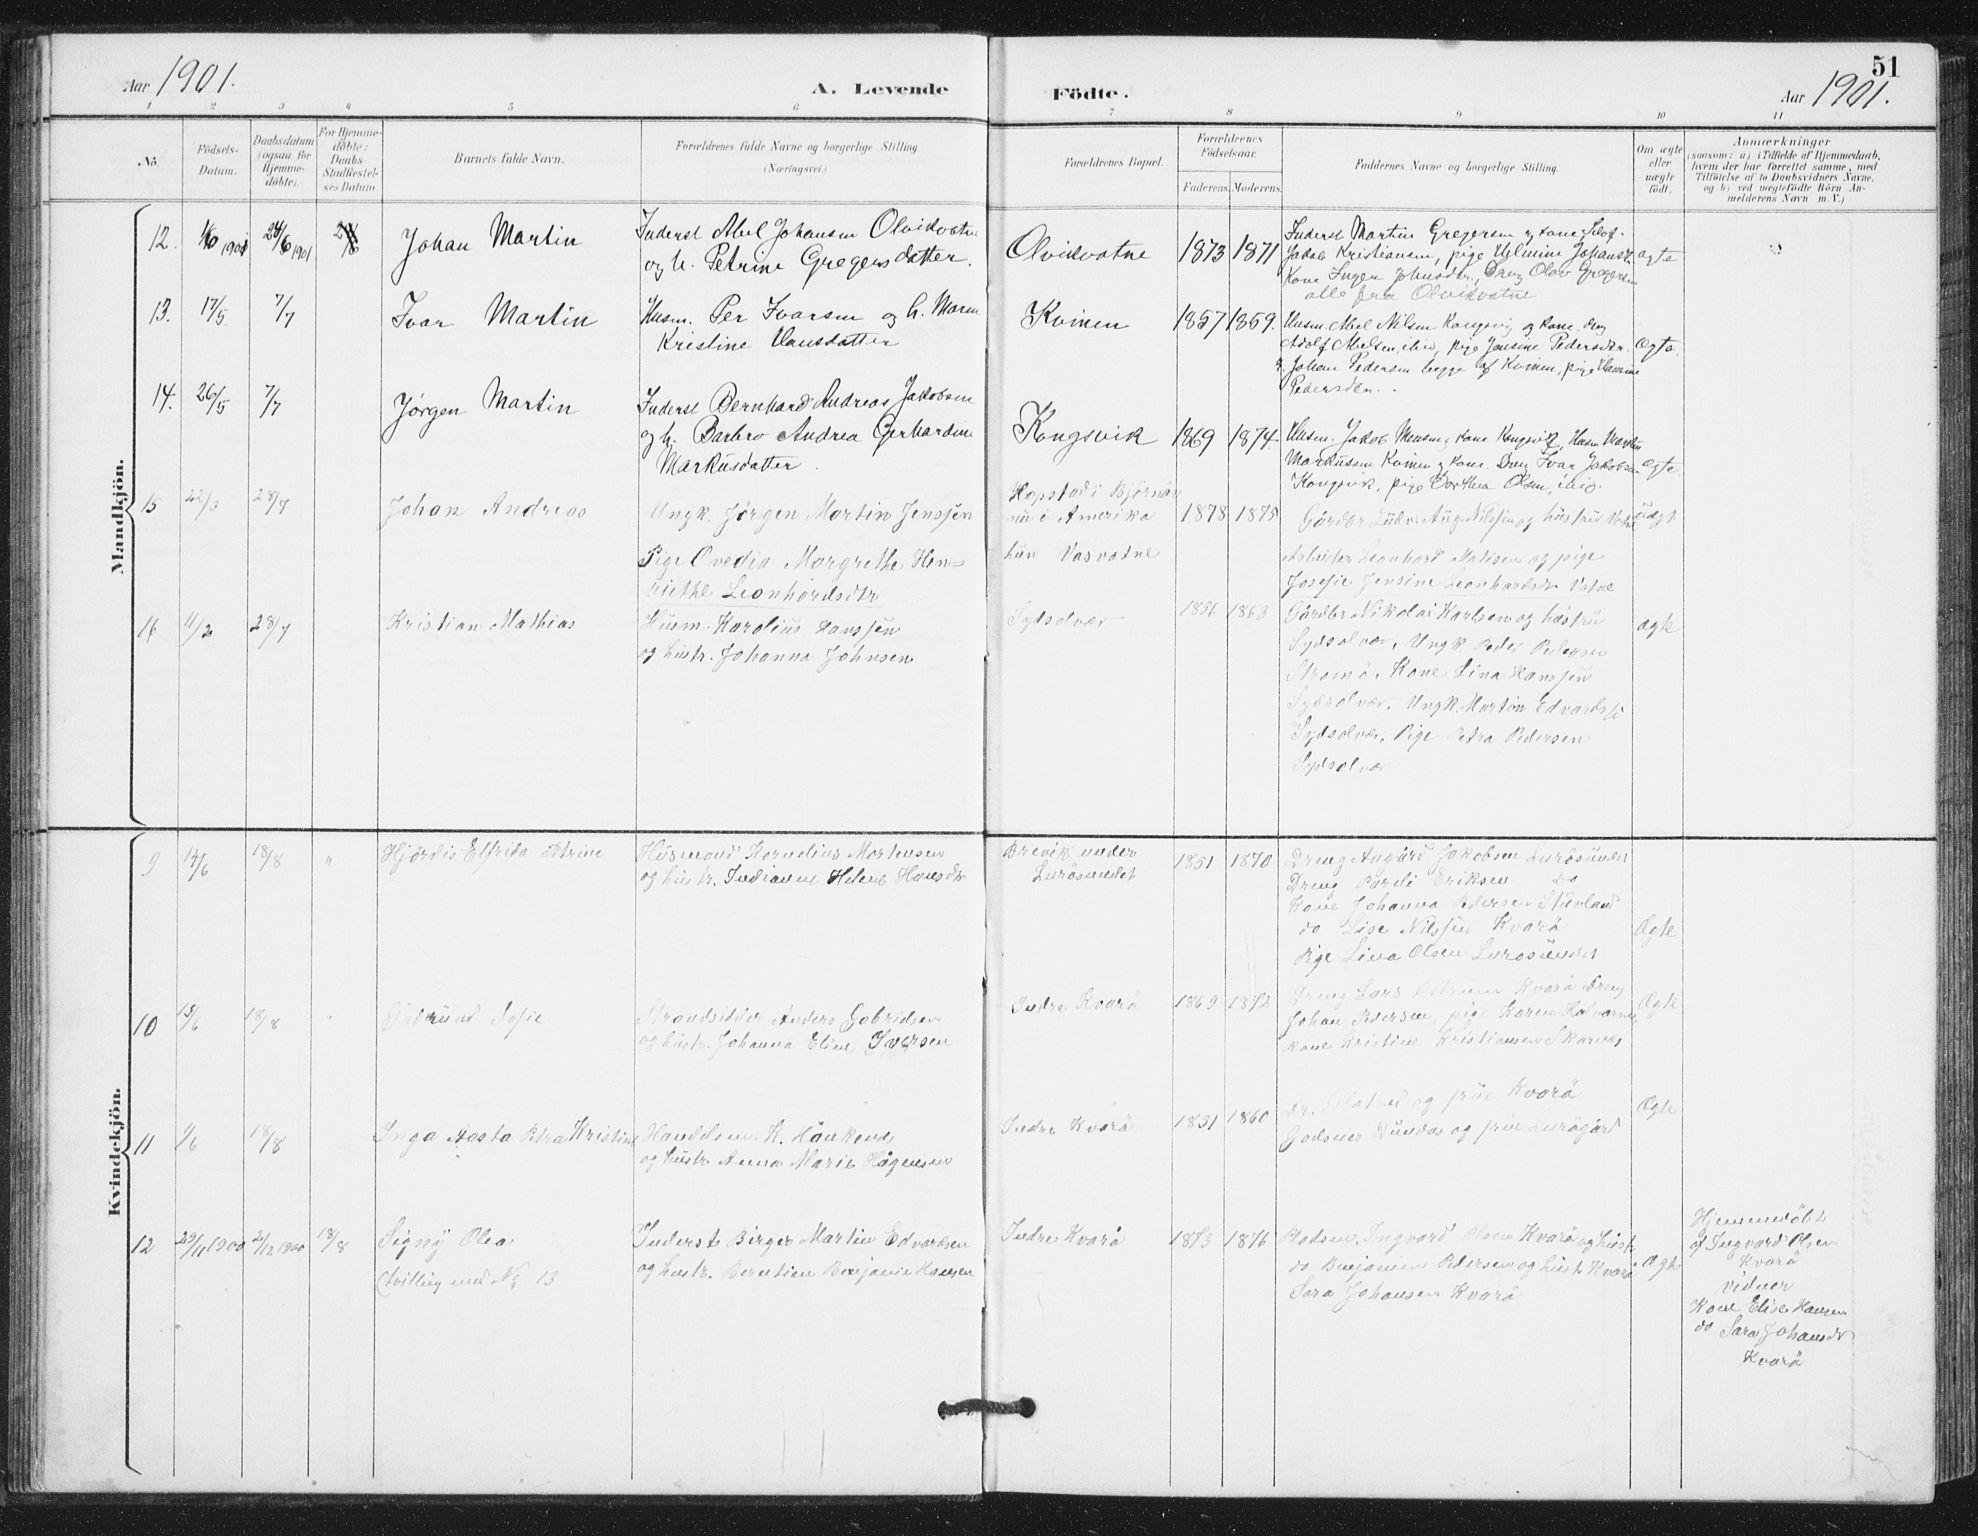 51
Aar 1901. A. Levende Födte. Aar 1901.
1 2 3 4 5 6 7 8 9 10 11
No Födsels-Datum. Daabsdatum (ogsaa for Hjemme-döbte). For Hjemme-döbte: Daabs-Stadfæstel-ses Datum. Barnets fulde Navn. Forældrenes fulde Navne og borgerlige Stilling (Næringsvei.) Forældrenes Bopæl. Forældrenes Födselsaar. Faderens. Moderens. Faddernes Navne og borgerlige Stilling. Om ægte eller uægte födt. Anmærkninger
(saasom: a) i Tilfælde af Hjemmedaab,
hvem der har forrettet samme, med
Tilföielse af to Daabsvidners Navne,
og b) ved uægtefödte Börn An-
melderens Navn m. V.)
Mandkjön.
12. 1/6 1901 24/6 1901 Johan Martin
Inderst Abel Johansen Olvikvatne
og h. Petrine Gregersdatter.
Olvikvatne 1873 1871
Inderst Martin Gregersen og kone
Jakob Kristiansen, pige Helmine
Kone Inger Drey Olav Gregersen
alle fra Olvikvatne
ægte
13. 17/5. 7/7 Ivar Martin
Husm. Per Ivarsen og h. Maren
Kristine Hansdatter
Kvinen 1857 1859.
Husm. Abel Nilsen Kongsvig og kone
Adolf Abelsen, ibid, pige Jensine Pedersdtr.
Johan Pedersen begge af Kvinen, pige
Pedersdtr.
Ægte.
14. 26/5 7/7 Jørgen Martin
Inderst Bernhard Andreas Jakobsen
og h. Barbro Andrea Gerhardine
Markusdatter.
Kongsvik 1869 1874.
Husm. Jakob kone Kongsvik, Husm Martin
Markussen Kvinen og kone. Dreng Ivar Jakobsen
Kongsvik, pige Dorthea Olsen, ibid.
Ægte.
15 22/3 28/7 Johan Andreas
Ungk. Jørgen Martin Jenssen
Pige Ovedia Margrethe Hen=
riethe Leonhardsdtr
Hopstad i
nu i Amerika
hun Vasvatne
1878 1875
Gårdbr Ludv. Aug. Nilssen og hustru
Arbeider Leonhard Matisen og pige
Josefie Jensine Leonhardsdtr
uægt
16 11/2 28/7 Kristian Mathias
Husm. Karolius Hanssen
og hustr. Johanna Johnsen
Sydsolvær 1856 1863
Gårdbr Nikolai Karlsen og hustru
Sydsolvær, Ungk. Peder Pedersen
Stromö, Kone Lina Hanssen
Sydsolvær, Ungk. Martin Edvards
Sydsolvær, Pige Petra Pedersen
Sydsolvær
ægte
Kvindekjön.
9 14/6 18/8 " Hjördis Elfrida Petrine
Husmand Kornelius Mortensen
og hustr. Indianne Helene Hansdtr
Brevik under
Lurösundet
1851 1870
Dreng Aagård Jakobsen Lurösundet
Dreng Pareli Eriksen do
Kone Johanna Pedersen Stuvland
do Lise Nilssen Kvarö
Pige Lina Olsen Lurösundet
Ægte
10 15/6 18/8 " Gudrund Sofie
Strandsidder Anders Gabrielsen
og hustr. Johanna Eline Iversen
Indre Kvarö 1869 1872
Dreng Lars Kvarö Dreng
Johan Pedersen, pige Karen
Kone Kristine Kristiansen Skarnes
Ægte
11 6 18/8 Inga Aasta Petra Kristine
Handelsm. K. Håukends
og hustr Anna Marie Hågensen
Indre Kvarö 1851 1860
Dr. og frue Kvarö
Godseier Dundas og frue Lurögård
Ægte
12 29/11 1900 2/12 1900 18/8 Signy Olea
(tvilling med No 13
Inderst Birger Martin Edvardsen
og hustr. Berntien Benjamin Hansen
Indre Kvarö 1873 1876
Pladsm. Ingvard Olsen Kvarö og hustr
do Benjamin Pedersen og hustr Kvarö
Sara Johansen Kvarö
Ægte
Hjemmedöbt
af Ingvard Olsen
Kvarö
vidner
Kone Elise Hansen
do Sara Johansdtr
Kvarö